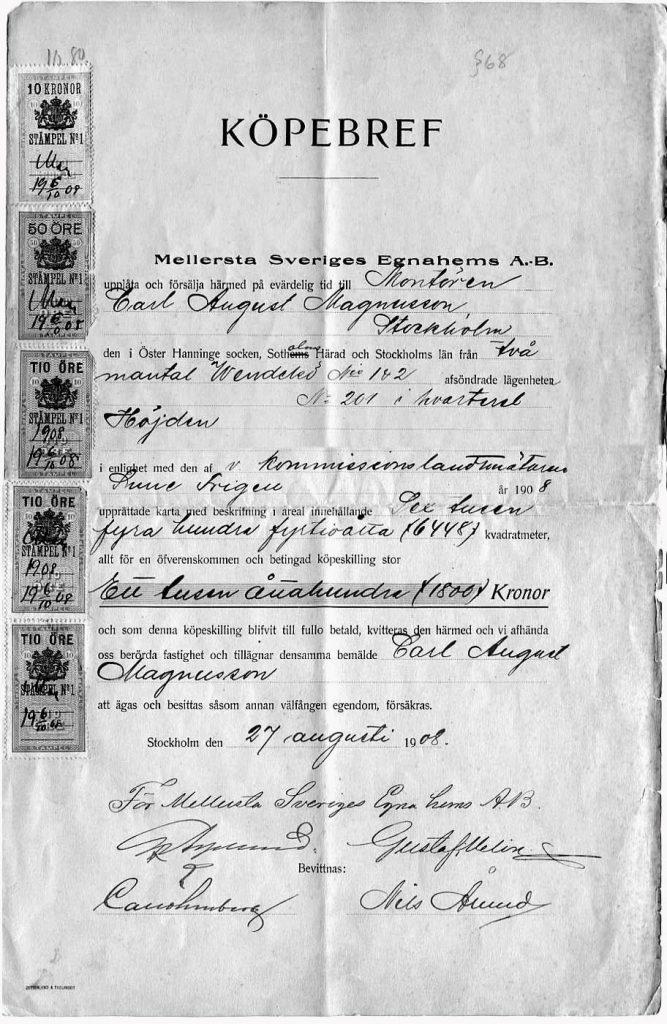 10.80
§68
10 KRONOR
STÄMPEL No 1
19 6/10 08
KÖPEBREF
STÄMPEL
50 ÖRE
STÄMPEL No 1
19 6/10 08
STÄMPEL
TIO ÖRE
STÄMPEL No 1
1908
19 6/10 08
STÄMPEL
TIO ÖRE
STÄMPEL No 1
1908
19 6/10 08
STÄMPEL
TIO ÖRE
STÄMPEL No 1
19 6/10 08
Mellersta Sveriges Egnahems A.-B.
upplåta och försälja härmed på evärdelig tid till Montören
Carl August Magnusson
Stockholm
den i Öster Hanninge socken, Sotholms Härad och Stockholms län från två
mantal Wendelsö No 1 & 2 afsöndrade lägenheten
No 201 i kvarteret
Höjden
i enlighet med den af v. kommissionslandtmätaren
Sune år 1908
upprättade karta med beskrifning i areal innehållande Sex tusen
fyra hundra fyrtioåtta (6448) kvadratmeter,
allt för en öfverenskommen och betingad köpeskilling stor
Ett tusen åttahundra (1800) Kronor
och som denna köpeskilling blifvit till fullo betald, kvitteras den härmed och vi afhända
oss berörda fastighet och tillägnar densamma bemälde Carl August
Magnusson
att ägas och besittas såsom annan välfången egendom, försäkras.
Stockholm den 27 augusti 1908.
För Mellersta Sveriges Egna hems AB.
Gustaf Melin
Bevittnas:
Nils